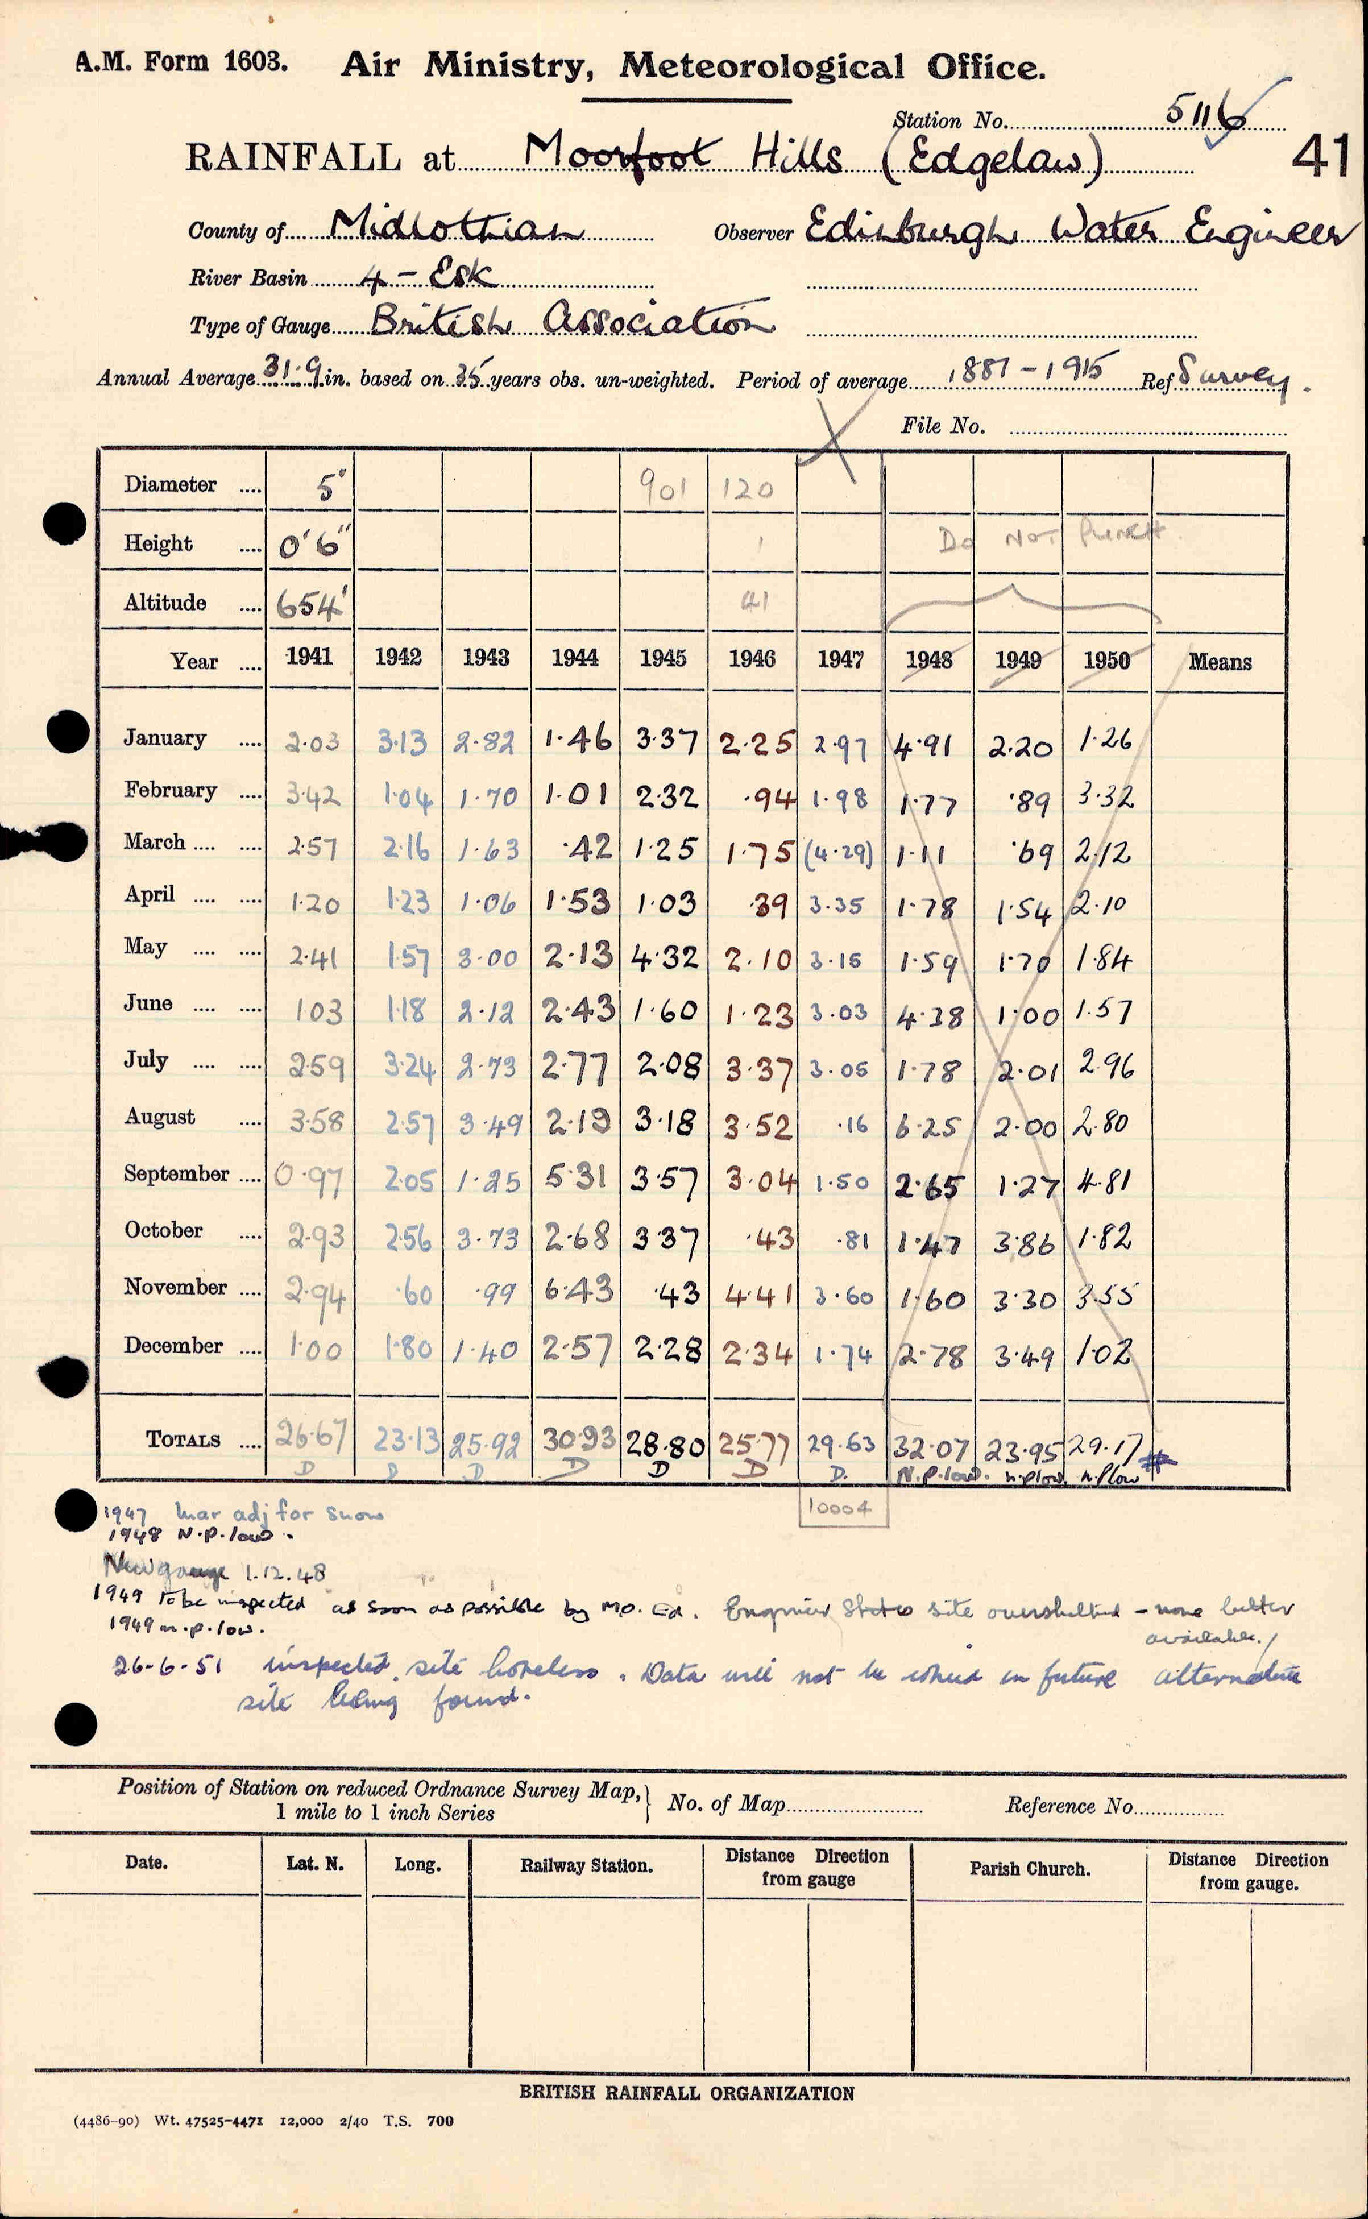 A.M. Form 1603. Air Ministry, Meteorological Office.
Station No. 5116
RAINFALL at Moorfoot Hills (Edgelaw) 41
County of Midlothian Observer Edinburgh Water Engineer
River Basin 4 - Esk
Type of Gauge British Association
Annual Average 31.9 in. based on 35 years obs. un-weighted. Period of average 1881-1915 Ref Survey.
File No.
Diameter .... 5" 901 120
Height .... 0'6" 1 Do NOT PUNCH
Altitude .... 654' 41
Year .... 1941 1942 1943 1944 1945 1946 1947 1948 1949 1950 Means
January .... 2.03 3.13 2.82 1.46 3.37 2.25 2.97 4.91 2.20 1.26
February .... 3.42 1.04 1.70 1.01 2.32 .94 1.98 1.77 .89 3.32
March .... .... 2.57 2.16 1.63 .42 1.25 1.75 (4.29) 1.11 .69 2.12
April .... .... 1.20 1.23 1.06 1.53 1.03 .39 3.35 1.78 1.54 2.10
May .... .... 2.41 1.57 3.00 2.13 4.32 2.10 3.15 1.59 1.70 1.84
June .... .... 1.03 1.18 2.12 2.43 1.60 1.23 3.03 4.38 1.00 1.57
July .... .... 2.59 3.24 2.73 2.77 2.08 3.37 3.05 1.78 2.01 2.96
August .... 3.58 2.57 3.49 2.19 3.18 3.52 .16 6.25 2.00 2.80
September .... 0.97 2.05 1.25 5.31 3.57 3.04 1.50 2.65 1.27 4.81
October .... 2.93 2.56 3.73 2.68 3.37 .43 .81 1.47 3.86 1.82
November .... 2.94 .60 .99 6.43 .43 4.41 3.60 1.60 3.30 3.55
December .... 1.00 1.80 1.40 2.57 2.28 2.34 1.74 2.78 3.49 1.02
TOTALS .... 26.67 23.13 25.92 30.93 28.80 25.77 29.63 32.07 23.95 29.17 #
D D D D D D D. N.p.low. n.p.low. n.p.low
10004
1947 Mar adj for snow
1948 N.p.low.
New gauge 1.12.48
1949 To be inspected as soon as possible by M.O. Ed. Engineer states site oversheltered - none better
available./
1949 n.p.low.
26-6-51 inspected. site hopeless. Data will not be used in future alternative
site being found.
Position of Station on reduced Ordnance Survey Map, 1 mile to 1 inch Series } No. of Map Reference No.
Date. Lat. N. Long. Railway Station. Distance Direction from gauge Parish Church. Distance Direction from gauge.
BRITISH RAINFALL ORGANIZATION
(4486-90) Wt. 47525-4471 12,000 2/40 T.S. 700